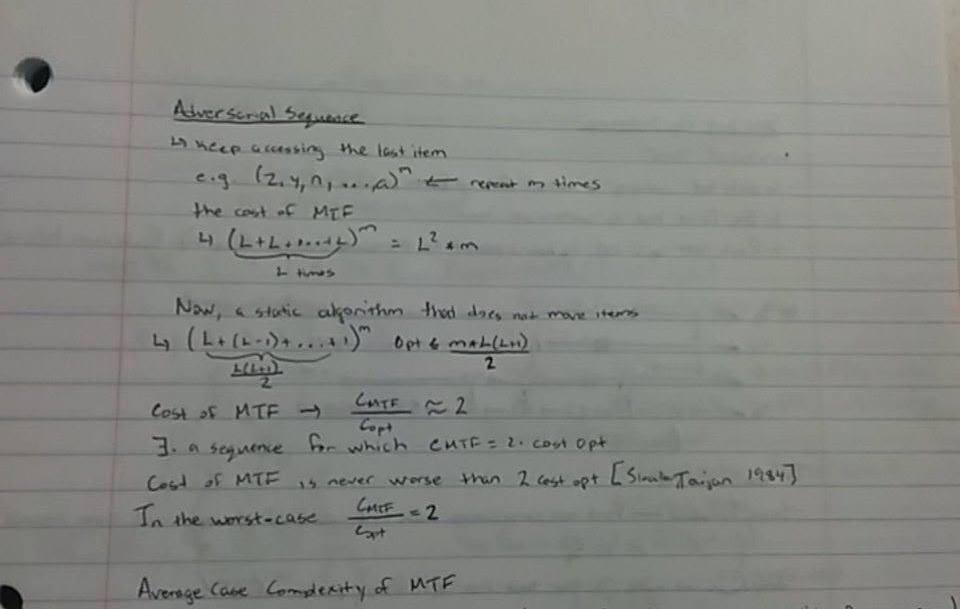 Adverserial Sequence
↳ Keep accessing the last item
e.g (z, y, n, ..., a)^m ← repeat m times
the cost of MTF
↳ (L+L+...+L)^m = L² * m
L times
Now, a static algorithm that does not move items
↳ (L+(L-1)+...+1)^m Opt ≤ m*L(L+1)/2
L(L+1)/2
Cost of MTF → C_MTF/C_opt ≈ 2
∃. a sequence for which CMTF = 2. cost opt
Cost of MTF is never worse than 2 cost opt [ Tarjan 1984]
In the worst-case C_MTF/C_opt = 2
Average Case Complexity of MTF